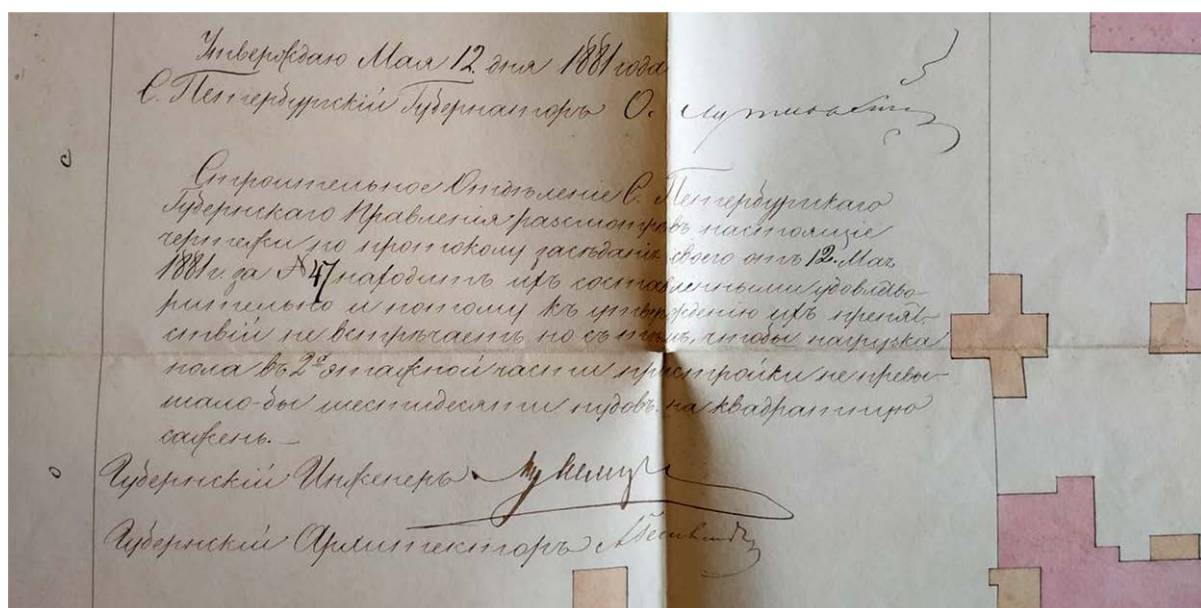 Утверждаю Мая 12 дня 1881 года
С. Петербургскій Губернаторъ
с
Строительное Отдѣленіе С. Петербургскаго
Губернскаго Правленія разсмотрѣвъ настоящіе
чертежи по протоколу засѣданія своего отъ 12 Мая
1881 г. за № 47 находитъ ихъ составленными удовлетво-
рительно и потому къ утвержденію ихъ препят-
ствій не встрѣчаетъ но съ тѣмъ, чтобы нагрузка
пола въ 2й этажной части пристройки не превы-
шало-бы шестидесяти пудовъ на квадратную
сажень.—
о
Губернскій Инженеръ
Губернскій Архитекторъ